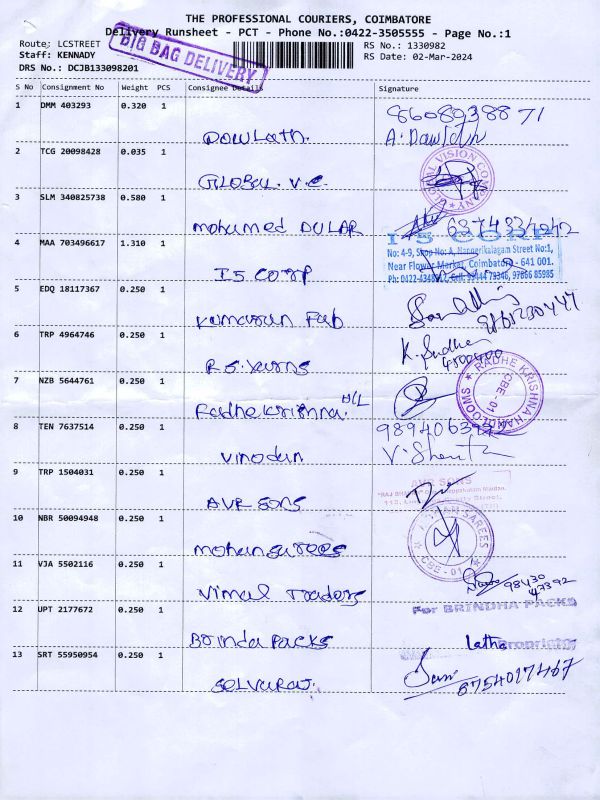 THE PROFESSIONAL COURIERS, COIMBATORE
Delivery Runsheet - PCT - Phone No.:0422-3505555 - Page No.:1
Route: LCSTREET
RS No.: 1330982
Staff: KENNADY
RS Date: 02-Mar-2024
DRS No.: DCJB133098201
BIG BAG DELIVERY
S No Consignment No Weight PCS Consignee Details Signature
1 DMM 403293 0.320 1
8608938871
DOWLATH. A. Dawlath
2 TCG 20098428 0.035 1
GLOBAL. V.C. GLOBAL VISION COMPANY
3 SLM 340825738 0.580 1
mohamed DULAR 6374334242
4 MAA 703496617 1.310 1
I S CORP
No: 4-9, Shop No: A, Nanjarikalagam Street No:1,
Near Flower Market, Coimbatore - 641 001.
IS CORP
5 EDQ 18117367 0.250 1
Kumaran Fab
6 TRP 4964746 0.250 1
K. Sudha
R.S. Yarns
7 NZB 5644761 0.250 1
RADHE KRISHNA HANDLOOMS CBE - 01
Radhe Krishna H/L
8 TEN 7637514 0.250 1
Vinodun
9 TRP 1504031 0.250 1
AVR SONS
AVR SONS
10 NBR 50094948 0.250 1
SAREES CBE - 01
mohan sarees
11 VJA 5502116 0.250 1
98430
47392
Vimal Traders
12 UPT 2177672 0.250 1
For BRINDHA PACKS
Brinda Packs Latha
13 SRT 55950954 0.250 1
8754027467
SELVARAJ.